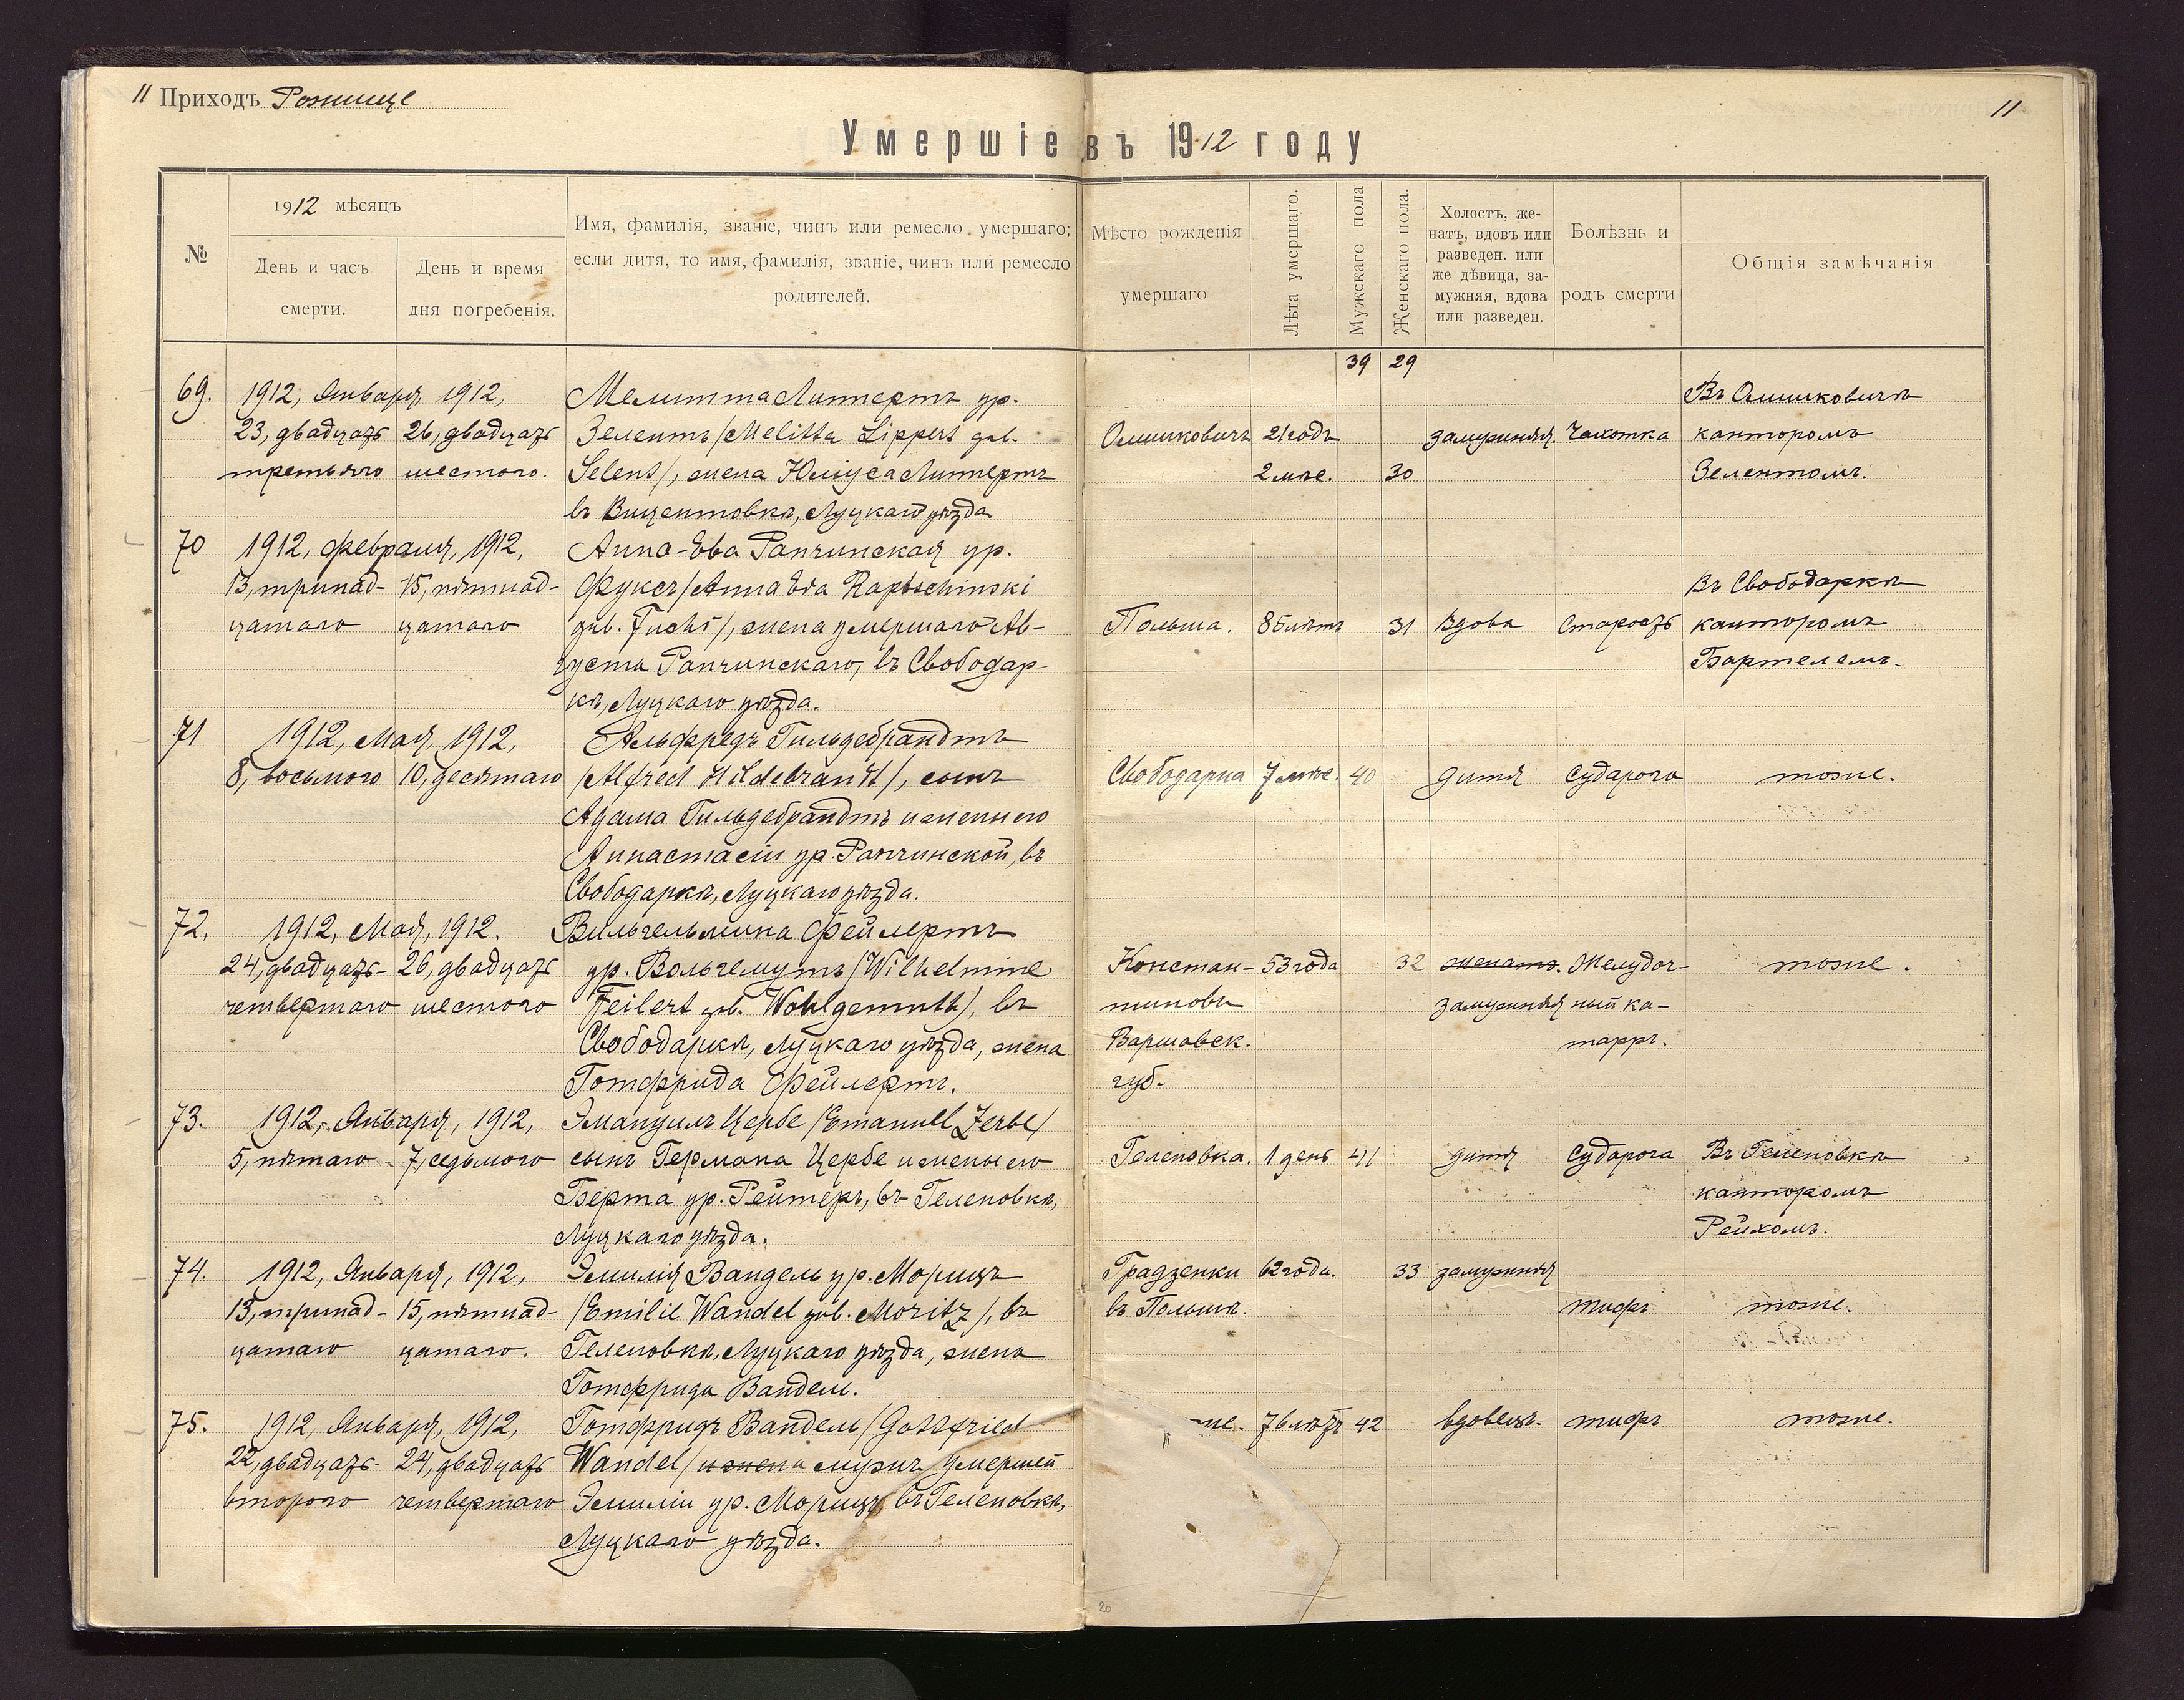 11 Приходъ Рожище
11
Умершіе въ 1912 году
№
1912 мѣсяцъ
День и часъ смерти.
День и время дня погребенія.
Имя, фамилія, званіе, чинъ или ремесло умершаго;
если дитя, то имя, фамилія, званіе, чинъ или ремесло
родителей.
Мѣсто рожденія
умершаго
Лѣта умершаго.
Мужскаго пола
Женскаго пола.
Холостъ, же-
натъ, вдовъ или
разведен. или
же дѣвица, за-
мужняя, вдова
или разведен.
Болѣзнь и
родъ смерти
Общія замѣчанія
39 29
69. 1912, Января, 1912, Мелитта Липпертъ ур. Въ Ошиковичѣ
23, двадцать 26, двадцать Зелентъ /Melitta Lippert geb. Ошиковичъ 21 годъ замужняя. Чахотка канторомъ
третьяго шестого. Selent/, жена Юліуса Липпертъ 2 мѣс. 30 Зелентомъ.
въ Вицентовкѣ, Луцкаго уѣзда
70 1912, февраля, 1912, Анна-Ева Рапчинская ур.
13, тринад- 15, пятнад- Фуксъ /Anna Eva Raptschinski Въ Свободаркѣ
цатаго цатаго geb. Fuchs/, жена умершаго Ав- Польша. 85 лѣтъ 31 Вдова Старость канторомъ
густа Рапчинскаго, въ Свободар- Бартелемъ.
кѣ, Луцкаго уѣзда.
71 1912, Мая, 1912, Альфредъ Гильдебрандтъ
8, восьмого 10, десятаго /Alfred Hildebrandt/, сынъ Свободарка 7 мѣс. 40 дитя Судорога тоже.
Адама Гильдебрандтъ и жены его
Аннастасіи ур. Рапчинской, въ
Свободаркѣ, Луцкаго уѣзда.
72. 1912, Мая, 1912. Вильгельмина Фейлертъ
24, двадцать- 26, двадцать ур. Вольгемутъ /Wilhelmine Констан- 53 года 32 женатъ. Желудоч- тоже.
четвертаго шестого Feilert geb. Wohlgemuth/, въ тиновъ замужняя ный ка-
Свободаркѣ, Луцкаго уѣзда, жена Варшавск. тарръ.
Готфрида Фейлертъ. губ.
73. 1912, Января, 1912, Эмануилъ Цербе /Emanuel Zerbe/
5, пятаго 7, седьмого сынъ Германа Цербе и жены его Геленовка. 1 день 41 дитя Судорога Въ Геленовкѣ
Берта ур. Рейтеръ, въ Геленовкѣ, канторомъ
Луцкаго уѣзда. Рейхомъ.
74. 1912, Января, 1912, Эмилія Вандель ур. Морицъ Градзенки 62 года. 33 замужняя
13, тринад- 15, пятнад- /Emilie Wandel geb. Moritz/, въ въ Польшѣ. тифъ тоже.
цатаго цатаго. Геленовкѣ, Луцкаго уѣзда, жена
Готфрида Вандель.
75. 1912, Января, 1912, Готфридъ Вандель /Gottfried 76 лѣтъ 42 вдовецъ. тифъ тоже.
22, двадцать- 24, двадцать Wandel/ и жена мужъ умершей
второго четвертаго Эмиліи ур. Морицъ въ Геленовкѣ,
Луцкаго уѣзда.
20